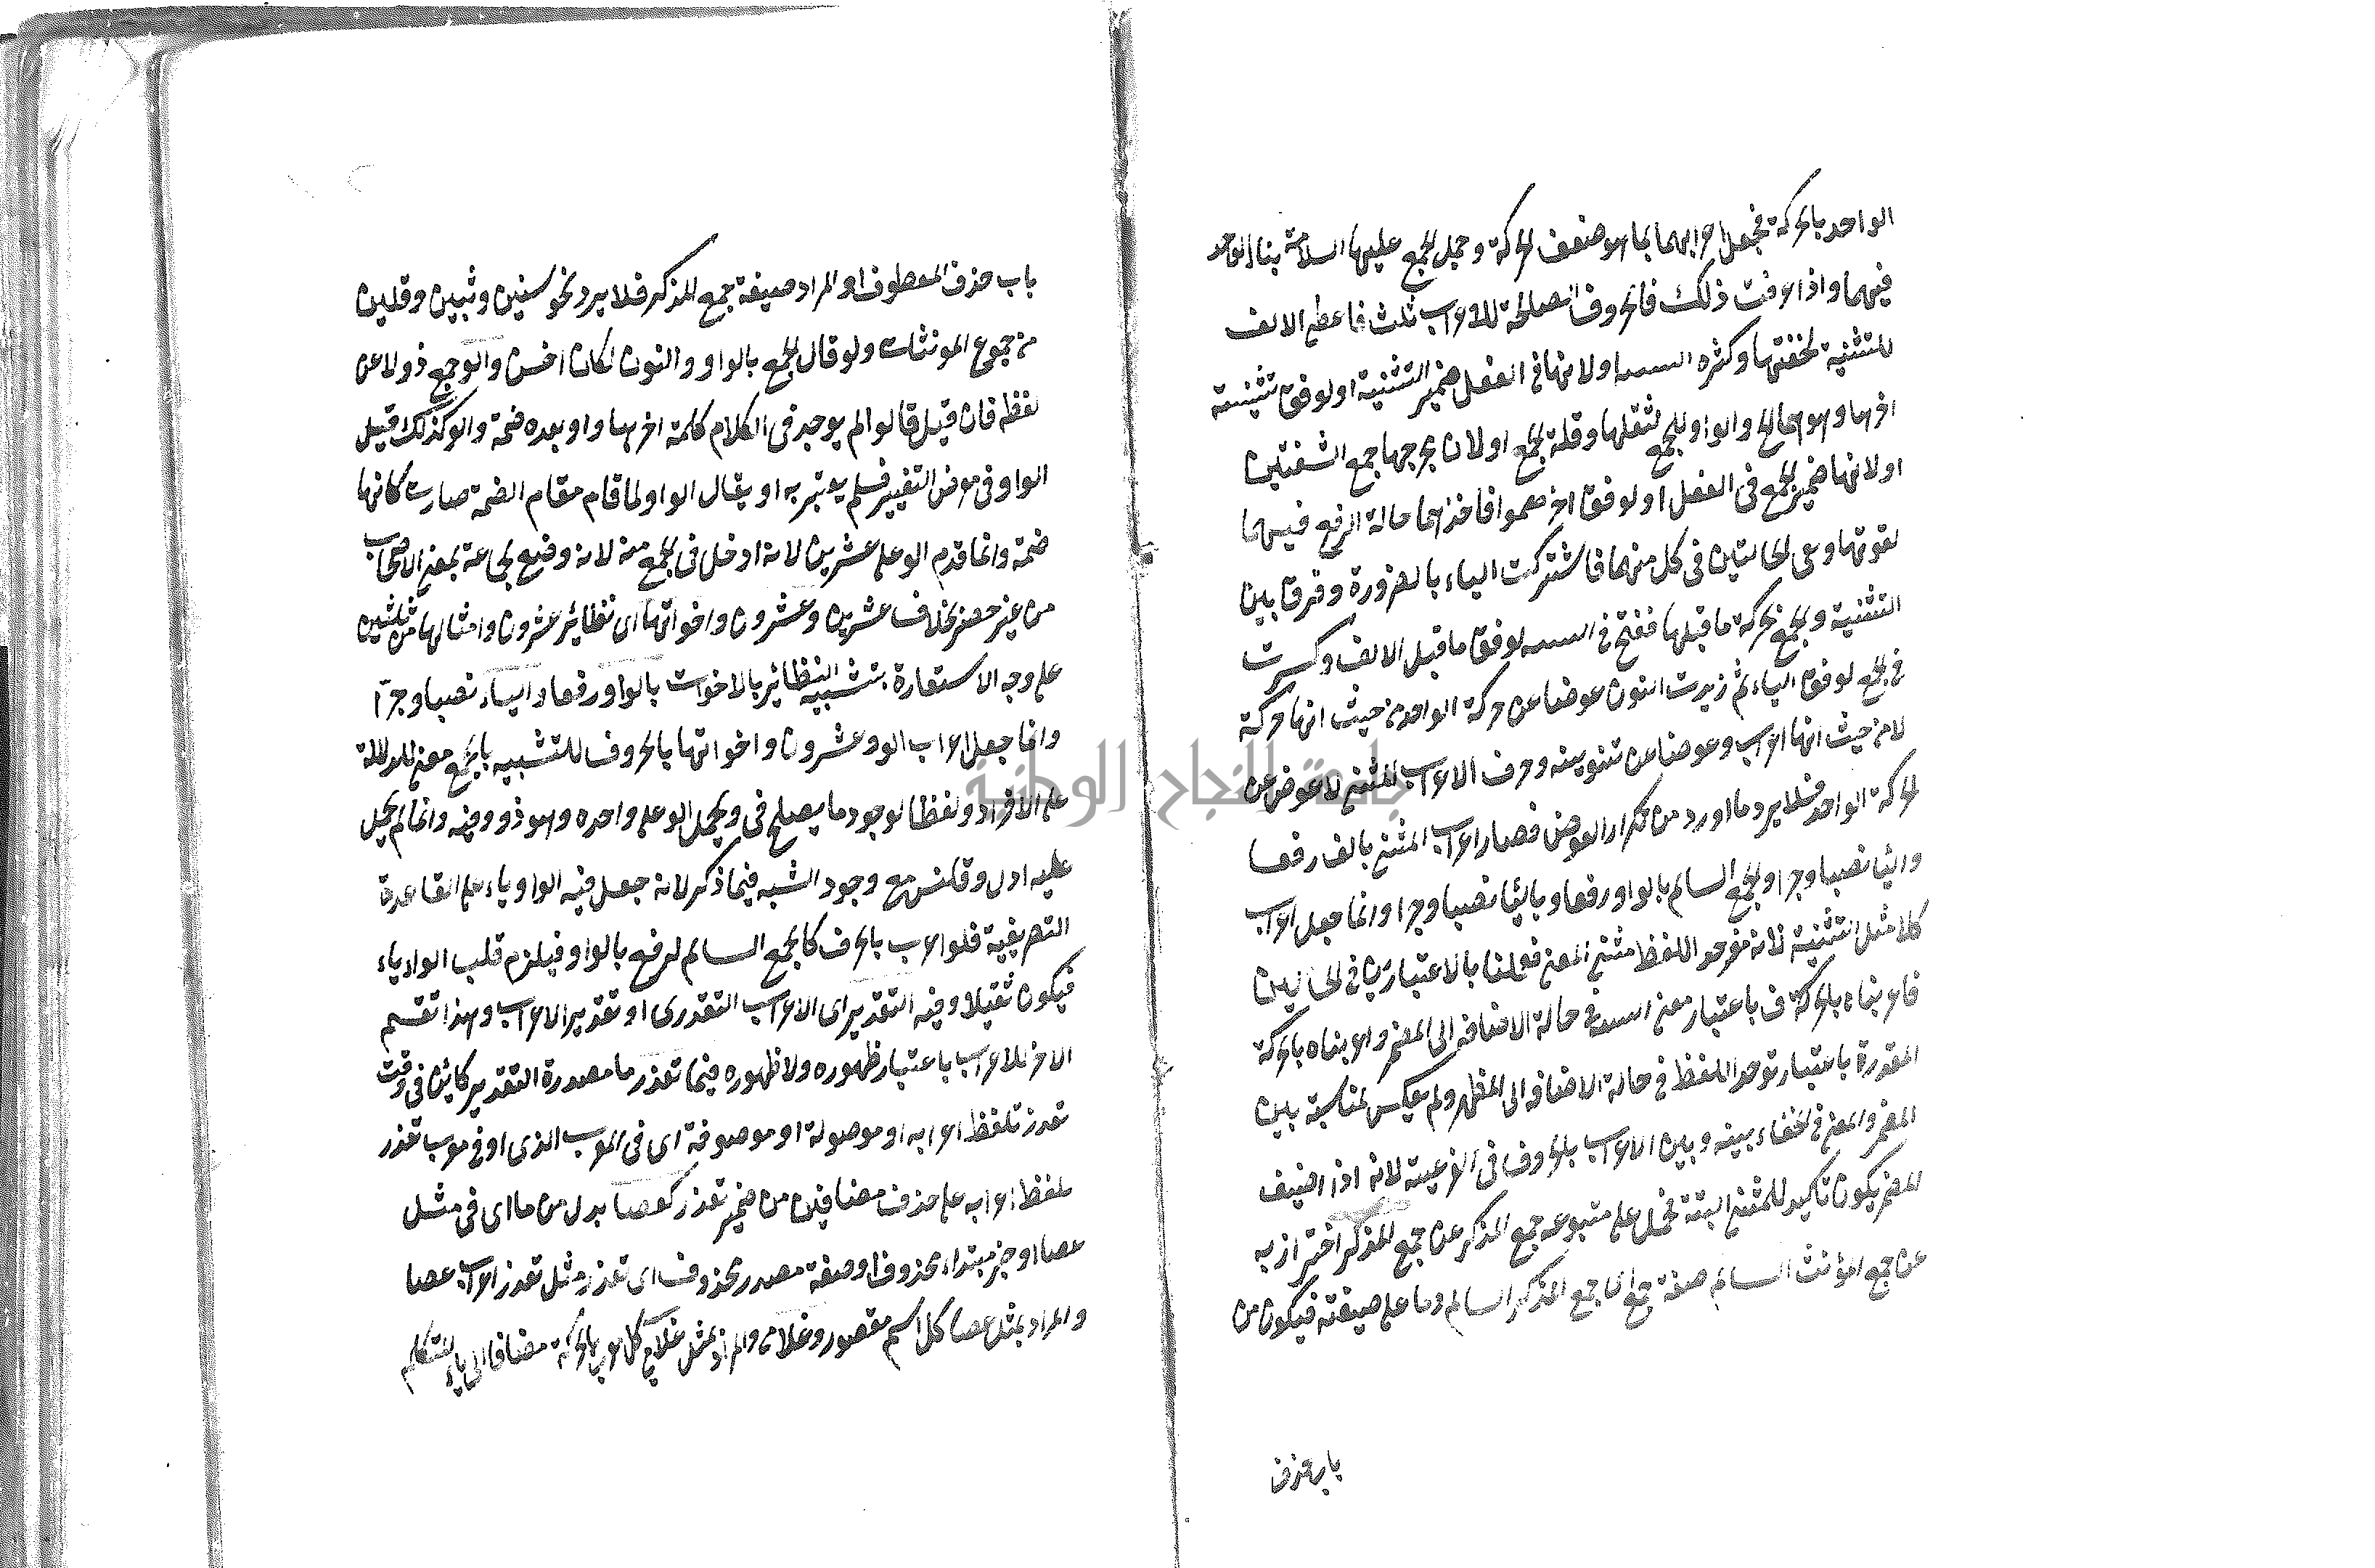 الواحد بالحركة فجعل اعرابهما بما هو ضعف الحركة وحمل الجمع عليها السلامة بناء الواحد
فيهما واذا عرفت ذلك فالحروف الصالحة للاعراب ثلث فاعطى الالف
للتثنية لخفتها وكثرة ولانها فى الفعل ضمير التثنية او لوفق تثنيته
اخرها وهو هما والواو للجمع لثقلها وقلة الجمع او لان مخرجها جمع الشفتين
او لانها ضمير الجمع فى الفعل او لوفق اخر همو افاخذاهما حالة الرفع فيهما
لقوتها وبقى الحالتين فى كل منهما فاشتركت الياء بالضرورة وفرق بين
التثنية والجمع بحركة ما قبلها ففتح فى لوفق ما قبل الالف وكسرت
فى الجمع لوفق الياء ثم زيدت النون عوضا عن حركة الواحد من حيث انها حركة
لا من حيث انها اعراب وعوضا عن تنوينه وحرف الاعراب للمثنى لا عوض عن
الحركة الواحد فلا يرد ما اورد من تكرار العوض فصار اعراب المثنى بالف رفعا
واليا نصبا وجرا والجمع السالم بالواو رفعا وباليا نصبا وجرا وانما جعل اعراب
كلا مثل التثنية لانه مفرد اللفظ مثنى المعنى فعملنا بالاعتبارين فى الحالين
فاعربناه بالحركة ف باعتبار معنى فى حالة الاضافة الى المضمر واعربناه بالحركة
المقدرة باعتبار توحد اللفظ فى حالة الاضافة الى المظهر ولم يعكس لمناسبة بين
المضمر والمعنى فى الخفاء بينه وبين الاعراب بالحروف فى الفرعية لانه اذا اضيف
المضمر يكون تاكيد للمثنى البتة فحمل على متبوعه جمع المذكر عن جمع المذكر احتراز به
عن جمع المؤنث السالم صفة جمع اى جمع المذكر السالم وما على صيغته فيكون من
باب حذف
باب حذف المعطوف او المراد صيغة جمع المذكر فلا يرد نحو سنين وثبين وقلين
من جموع المونثات ولو قال الجمع بالواو والنون لكان احسن والو جمع ذو لا عن
لفظه فان قيل قالوا لم يوجد فى الكلام كلمة اخرها واو بعده ضمة والو كذلك قيل
الواو فى معرض التغيير فلم يعتبر به او يقال الواو لما قام مقام الضمة صارت كانها
ضمة وانما قدم الو على عشرين لانه ادخل فى الجمع منه لانه وضع لجماعة بمعنى الاصحاب
من غير حصر بخلاف عشرين وعشرون واخواتها اى نظائر عشرون وامثالها من ثلثين
على وجه الاستعارة بتشبيه النظائر بالاخوات بالواو رفعا والياء نصبا وجرّا
وانما جعل اعراب الو وعشرون واخواتها بالحروف للتشبيه بالجمع معنى للدلالة
على الافراد ولفظا لوجود ما يصلح فى ويحمل الو على واحده وهو ذو وفيه وانما لم يحمل
عليه ادل وقلنس مع وجود الشبه فيما ذكر لانه جعل فيه الواو ياء على القاعدة
التصريفية فلو اعرب بالحرف كالجمع السالم لرفع بالواو فيلزم قلب الواو ياء
فيكون ثقيلا وفيه التقدير اى الاعراب التقدرى او تقدير الاعراب وهذا تقسم
الاخر للاعراب باعتبار ظهوره ولا ظهوره فيما تعذر ما مصدرة التقدير كائن فى وقت
تعذر تلفظ اعرابه او موصولة او موصوفة اى فى المعرب الذى او فى معرب تعذر
تلفظ اعرابه على حذف مضافين من ضمير تعذر كعصا بدل من ما اى فى مثل
عصا او خبر مبتداء محذوف او صفة مصدر محذوف اى تعذر مثل تعذر الاعراب عصا
والمراد بمثل عصا كل اسم مقصور وغلامى والمراد بمثل غلامى كل معرب بالحركة مضافا الى ياء المتكلم
جامعة النجاح الوطنية